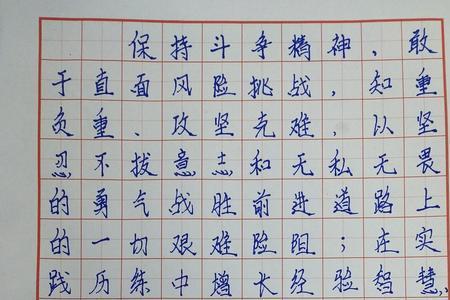 保持斗争精神、敢
于直面风险挑战,知重
负重、攻坚克难,以坚
忍不拔意志和无私无畏
的勇气战胜前进道路上
的一切艰难险阻;在实
践历练中增长经验智慧,